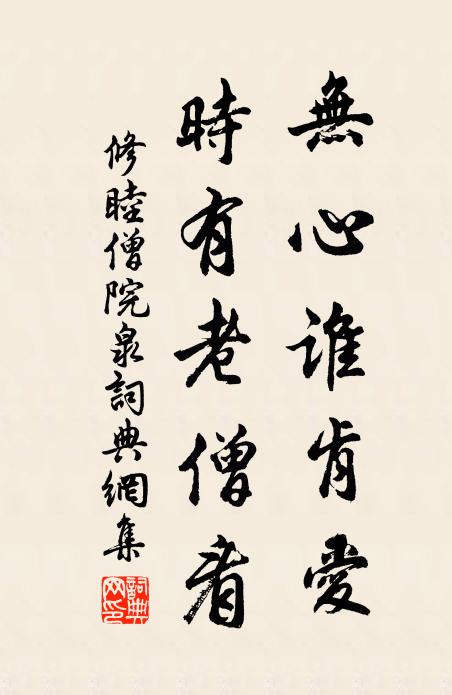 無心誰肯愛
時有老僧看
修睦僧院泉詞典網集
詞典网印